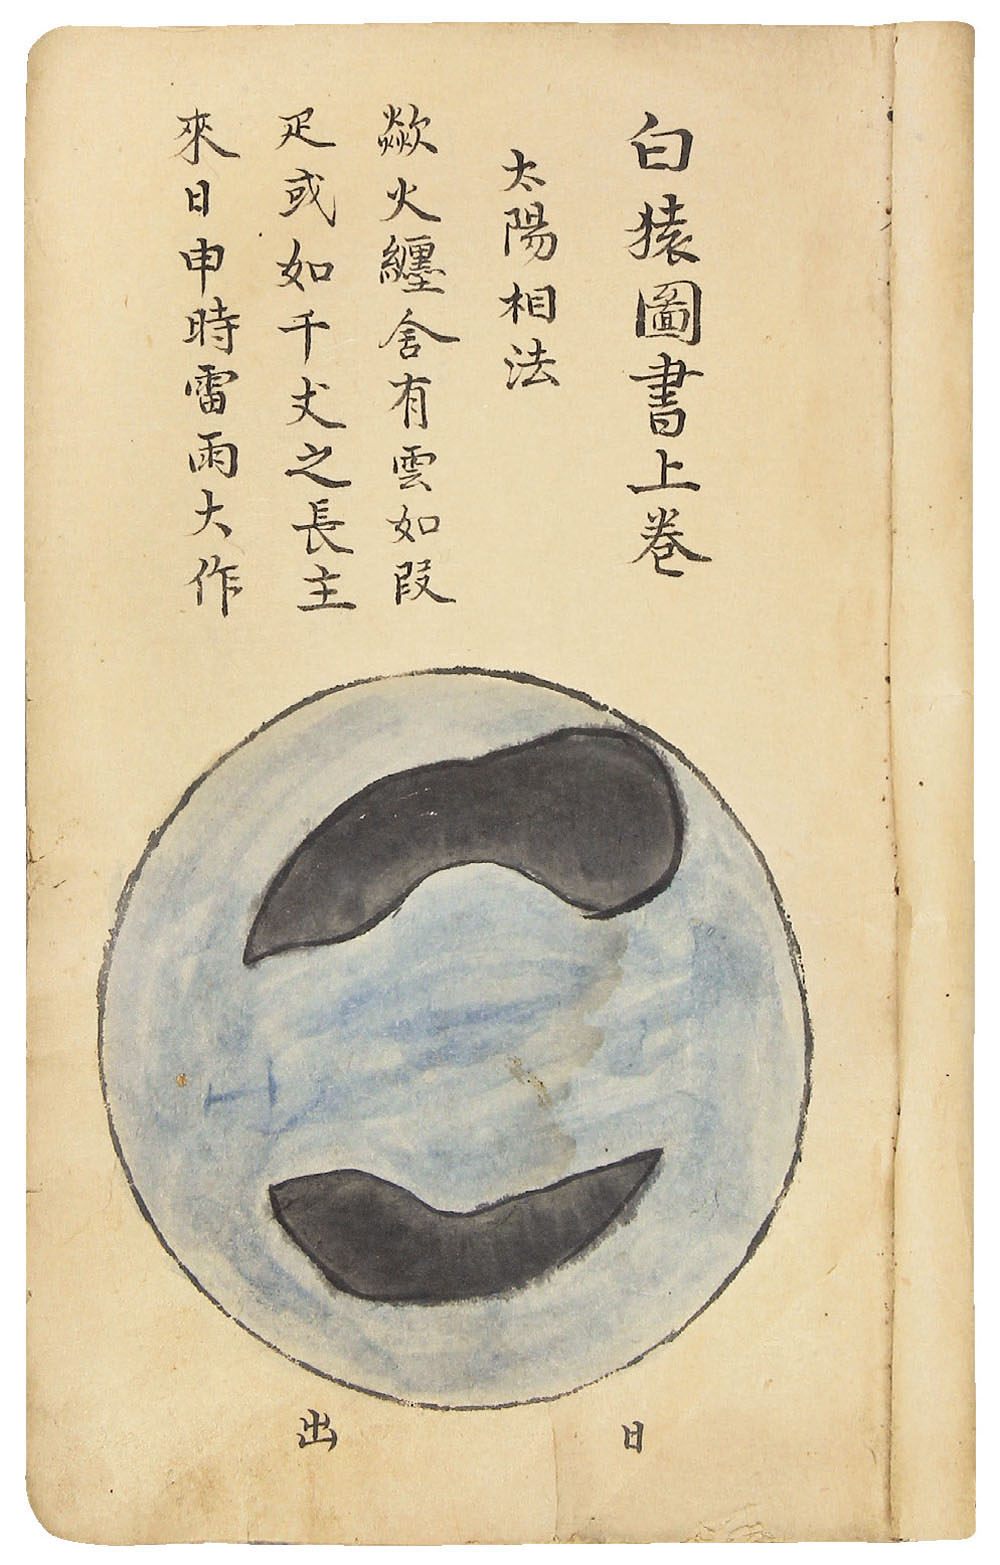 白猿圖書上卷
太陽相法
歘火纏舍有雲如叚
疋或如千丈之長主
來日申時雷雨大作
日出